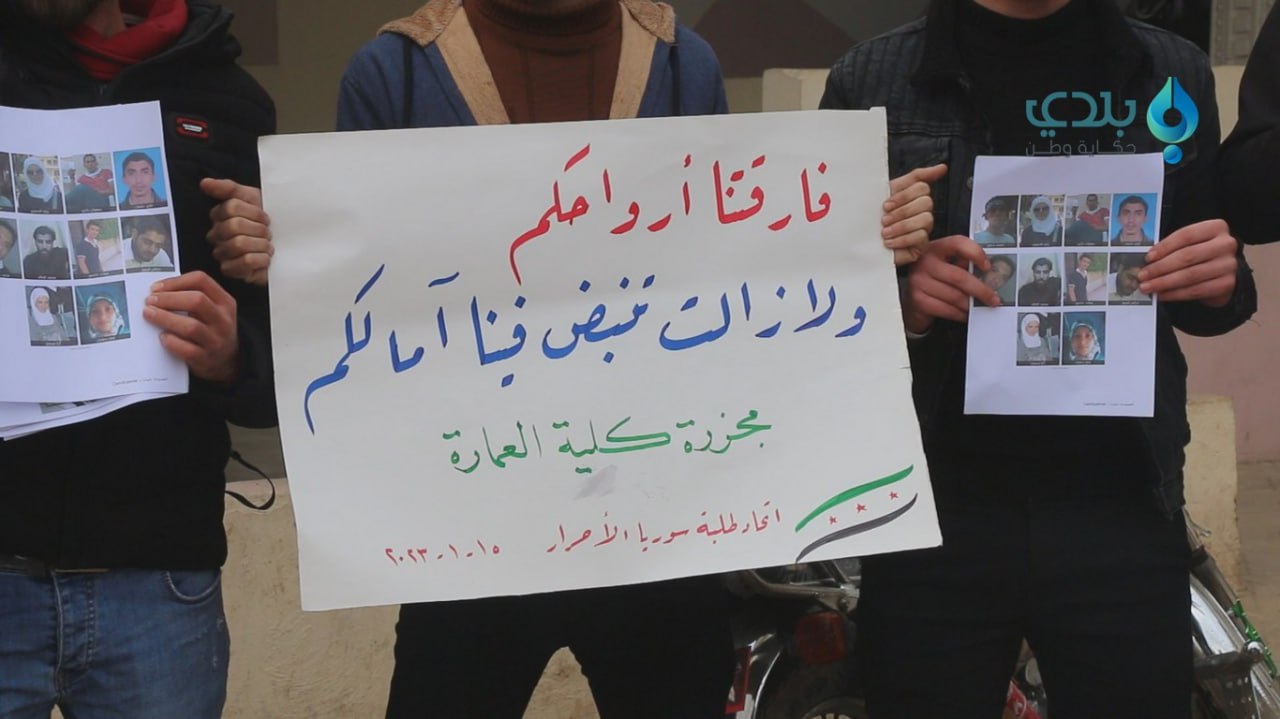 بلدي
حكاية وطن
فارقتنا أرواحكم
ولازالت تنبض فينا آمالكم
مجزرة كلية العمارة
اتحاد طلبة سوريا الأحرار
٢٠٢٣-١-١٥